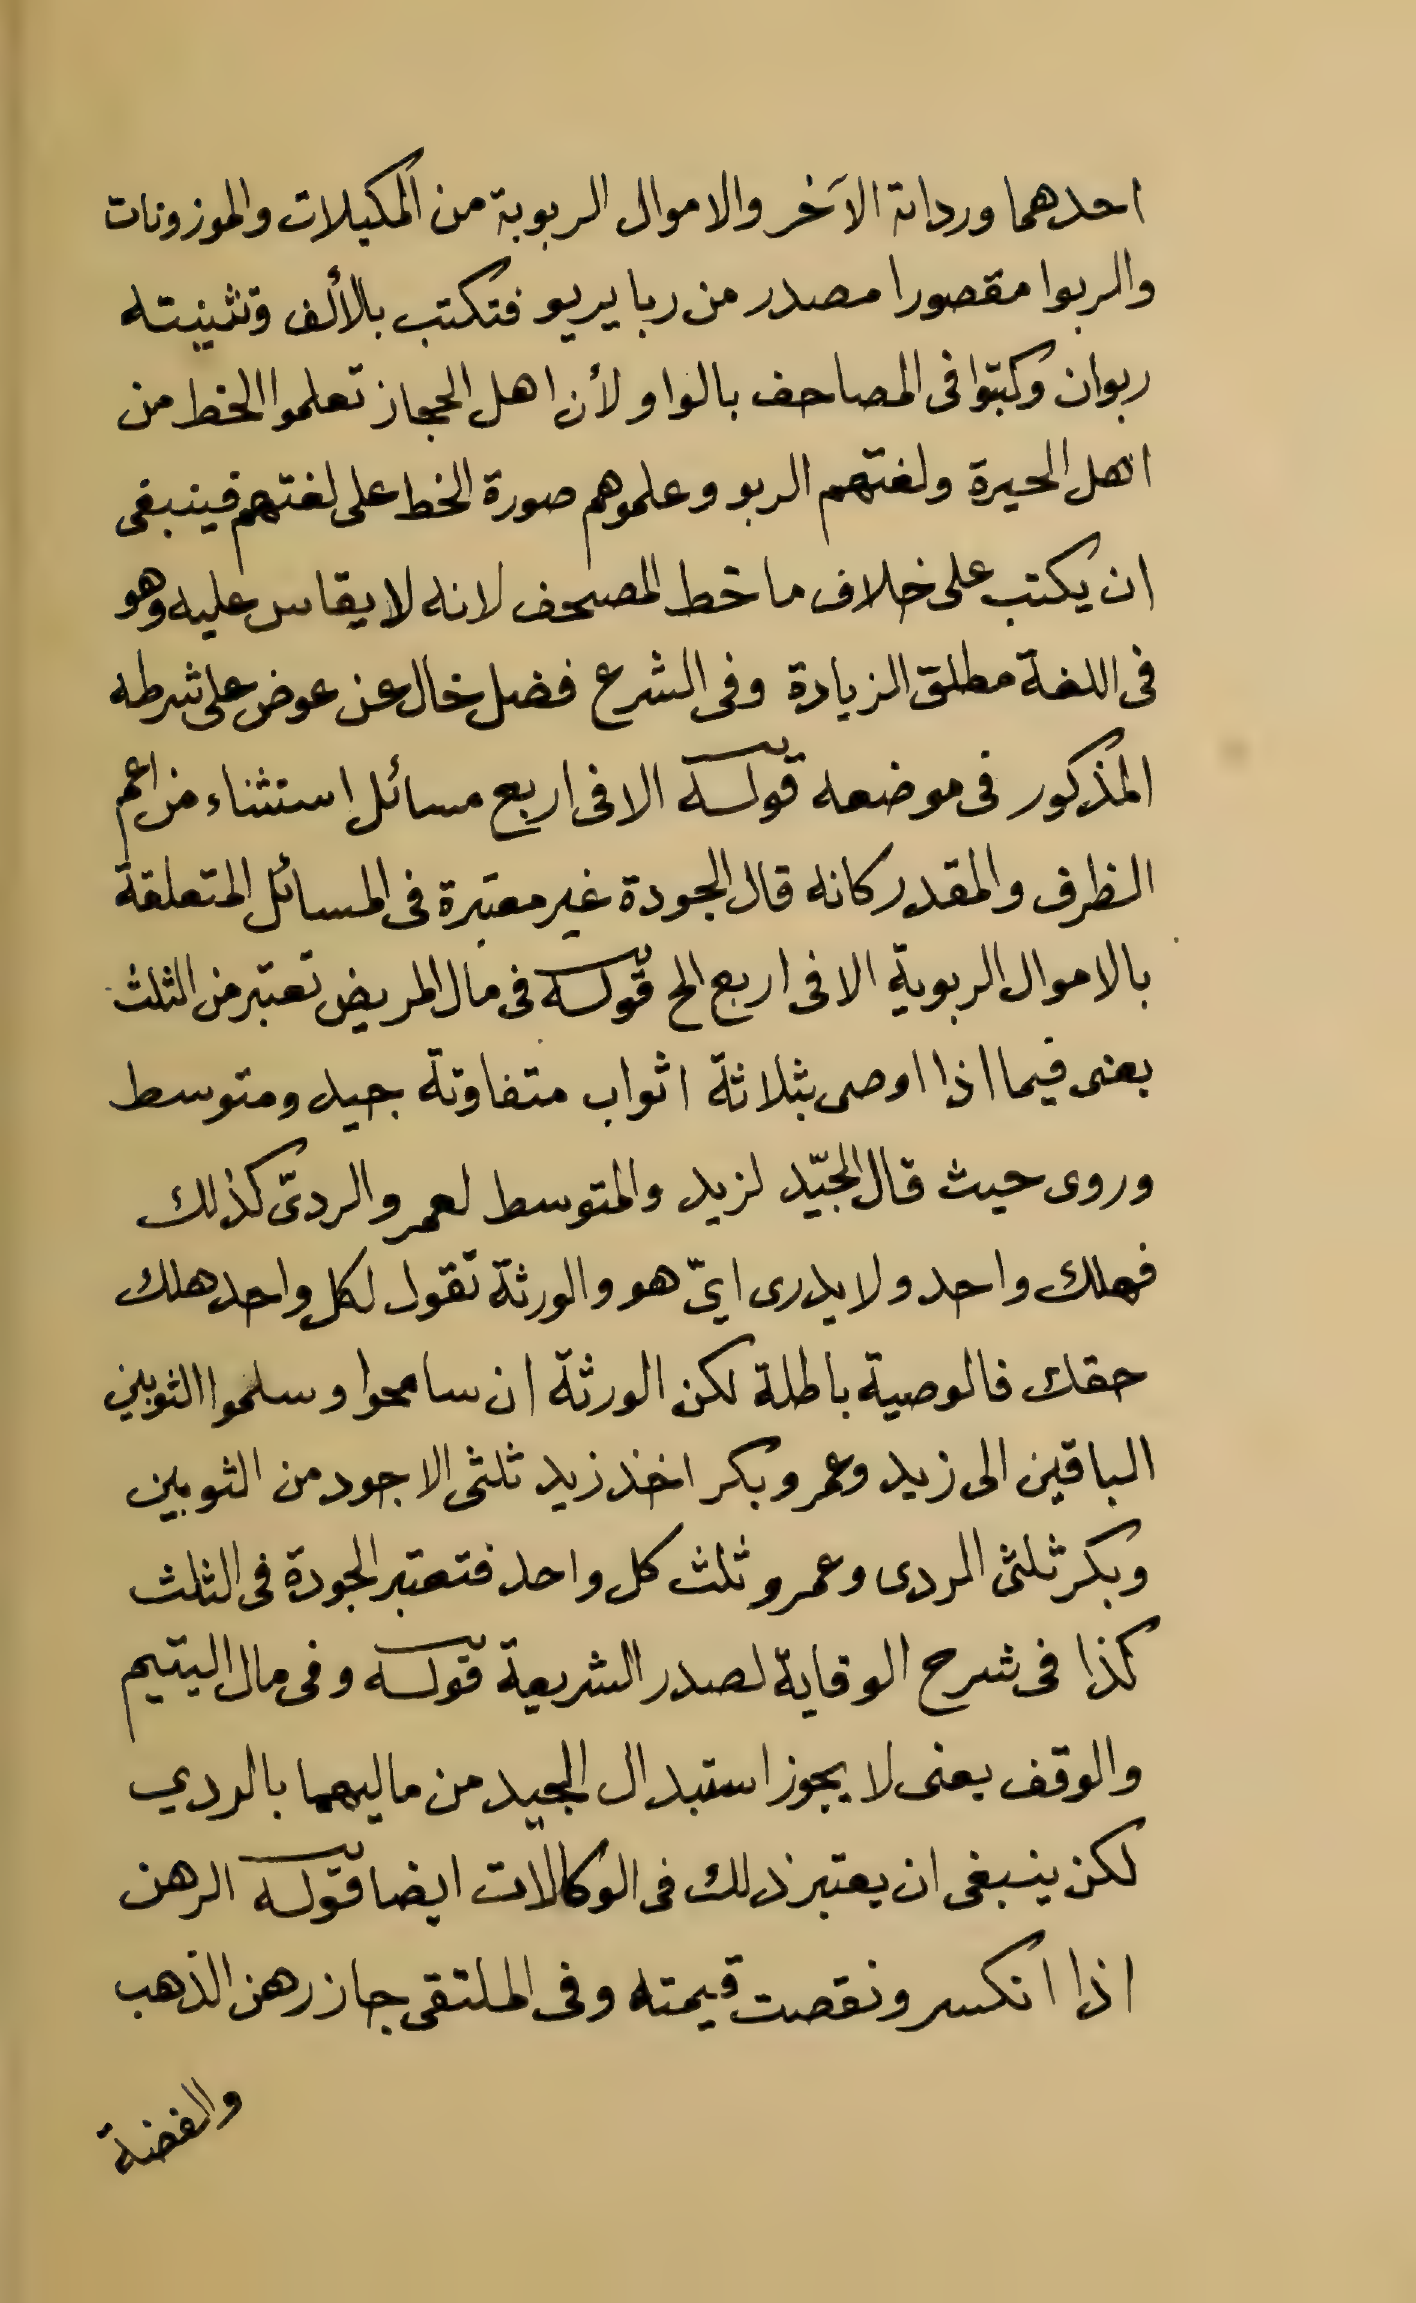 احدهما وردائة الآخر والاموال الربوية من المكيلات والموزونات
والربوا مقصورا مصدر من ربا يربو فتكتب بالألف وتثنيته
ربوان وكتبوا فى المصاحف بالواو لأن اهل الحجاز تعلموا الخط من
اهل الحيرة ولغتهم الربو وعلموهم صورة الخط على لغتهم فينبغى
ان يكتب على خلاف ما خط المصحف لانه لا يقاس عليه وهو
فى اللغة مطلق الزيادة وفى الشرع فضل خال عن عوض على شرطه
المذكور فى موضعه قوله الا فى اربع مسائل استثناء من اعم
الظرف والمقدر كانه قال الجودة غير معتبرة فى المسائل المتعلقة
بالاموال الربوية الا فى اربع الخ قوله فى مال المريض تعتبر من الثلث
يعنى فيما اذا اوصى بثلاثة اثواب متفاوتة جيد ومتوسط
وروى حيث قال الجيّد لزيد والمتوسط لعمر والردىّ كذلك
فهلك واحد ولا يدرى ايّ هو والورثة تقول لكل واحد هلك
حقك فالوصية باطلة لكن الورثة ان سامحوا وسلموا الثوبين
الباقين الى زيد وعمر وبكر اخذ زيد ثلثى الاجود من الثوبين
وبكر ثلثى الردى وعمرو ثلث كل واحد فتعتبر الجودة فى الثلث
كذا فى شرح الوقاية لصدر الشريعة قوله وفى مال اليتيم
والوقف يعنى لا يجوز استبدال الجيد من ماليهما بالردي
لكن ينبغى ان يعتبر ذلك فى الوكالات ايضا قوله الرهن
اذا انكسر ونقصت قيمته وفى الملتقى جاز رهن الذهب
والفضة